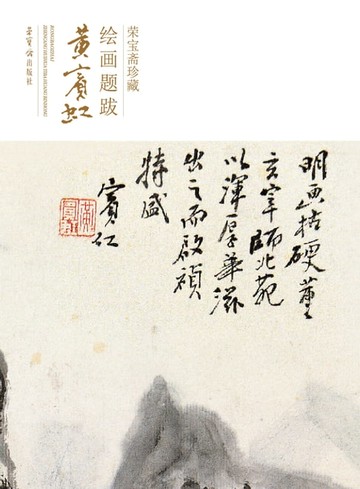 荣宝斋珍藏
绘画题跋
黄宾虹
荣宝斋出版社
明画枯硬董
玄宰师北苑
以浑厚华滋
出之而启祯
特盛
宾虹